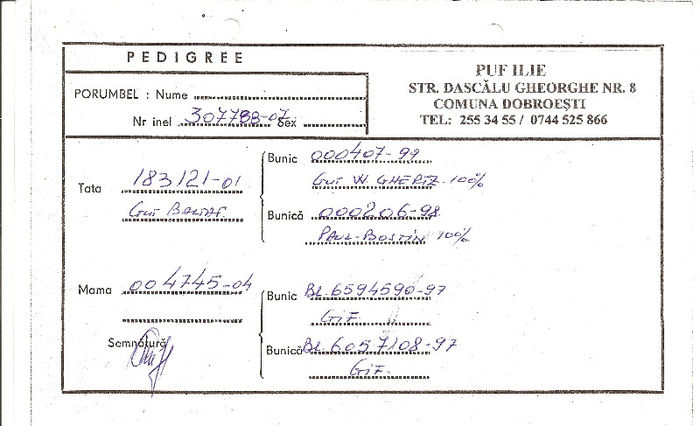 PEDIGREE
PUF ILIE
STR. DASCĂLU GHEORGHE NR. 8
COMUNA DOBROEȘTI
TEL: 255 34 55 / 0744 525 866
PORUMBEL : Nume
Nr inel 307788-07 Sex
Tata 183121-01
Gut
Bunic 000407-99
Gut W. GHERTZ. 100%
Bunică 000206-98
PAUL-BOSTIN 100%
Mama 004745-04
Bunic BL.6594590-97
GiF.
Bunică BL.6057108-97
GiF.
Semnătură